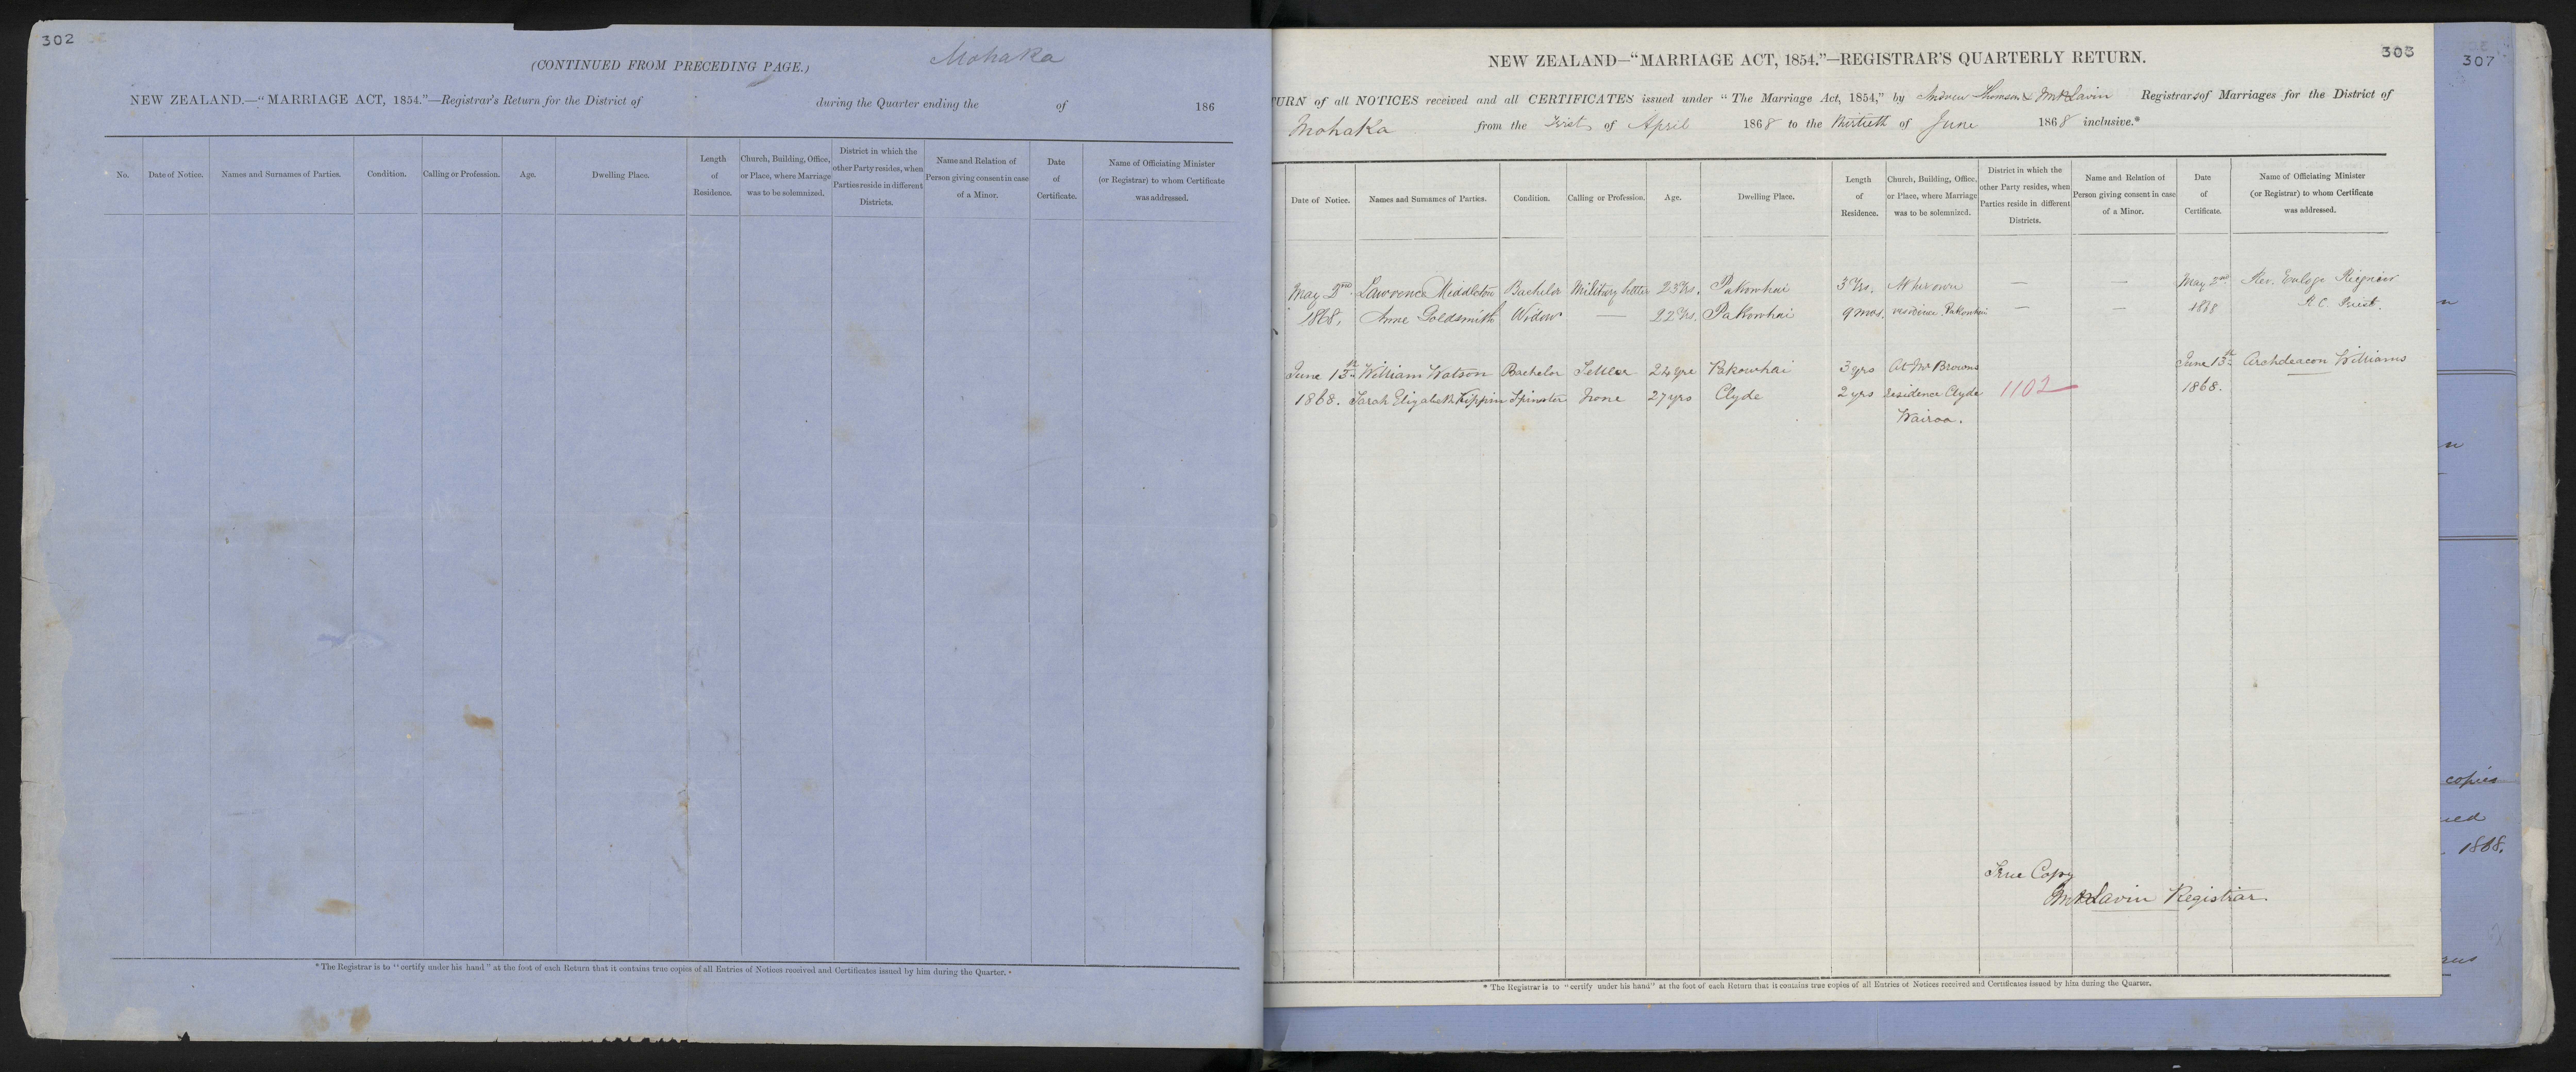 302
(CONTINUED FROM PRECEDING PAGE.)
Mohaka
NEW ZEALAND.—"MARRIAGE ACT, 1854."—Registrar's Return for the District of during the Quarter ending the of 186
No.
Date of Notice.
Names and Surnames of Parties.
Condition.
Calling or Profession.
Age.
Dwelling Place.
Length
of
Residence.
Church, Building, Office,
or Place, where Marriage
was to be solemnized.
District in which the
other Party resides, when
Parties reside in different
Districts.
Name and Relation of
Person giving consent in case
of a Minor.
Date
of
Certificate.
Name of Officiating Minister
(or Registrar) to whom Certificate
was addressed.
* The Registrar is to "certify under his hand" at the foot of each Return that it contains true copies of all Entries of Notices received and Certificates issued by him during the Quarter.
303
NEW ZEALAND—"MARRIAGE ACT, 1854."—REGISTRAR'S QUARTERLY RETURN.
TURN of all NOTICES received and all CERTIFICATES issued under "The Marriage Act, 1854," by Andrew Thomson & Lavin Registrars of Marriages for the District of
Mohaka from the First of April 1868 to the thirtieth of June 1868 inclusive.*
Date of Notice.
Names and Surnames of Parties.
Condition.
Calling or Profession.
Age.
Dwelling Place.
Length
of
Residence.
Church, Building, Office,
or Place, where Marriage
was to be solemnized.
District in which the
other Party resides, when
Parties reside in different
Districts.
Name and Relation of
Person giving consent in case
of a Minor.
Date
of
Certificate.
Name of Officiating Minister
(or Registrar) to whom Certificate
was addressed.
May 2nd Lawrence Middleton Bachelor Military Settler 23 Yrs. Pakowhai 3 Yrs. At her own — — May 2nd Rev. Euloge Reignier
1868, Anne Goldsmith Widow — 22 Yrs. Pakowhai 9 mos. residence Pakowhai — — 1868 R C. Priest.
June 13th William Watson Bachelor Settler 24 yrs Pakowhai 3 yrs At Mr Browns June 13th Archdeacon Williams
1868. Sarah Elizabeth Kippin Spinster None 27 yrs Clyde 2 yrs residence Clyde 1102 1868.
Wairoa.
True Copy
Lavin Registrar.
* The Registrar is to "certify under his hand" at the foot of each Return that it contains true copies of all Entries of Notices received and Certificates issued by him during the Quarter.
307
copies
1868.